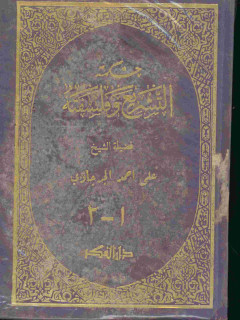 حكمة
التشريع وفلسفته
فضيلة الشيخ
علي أحمد الجرجاوي
١-٢
دار الفكر